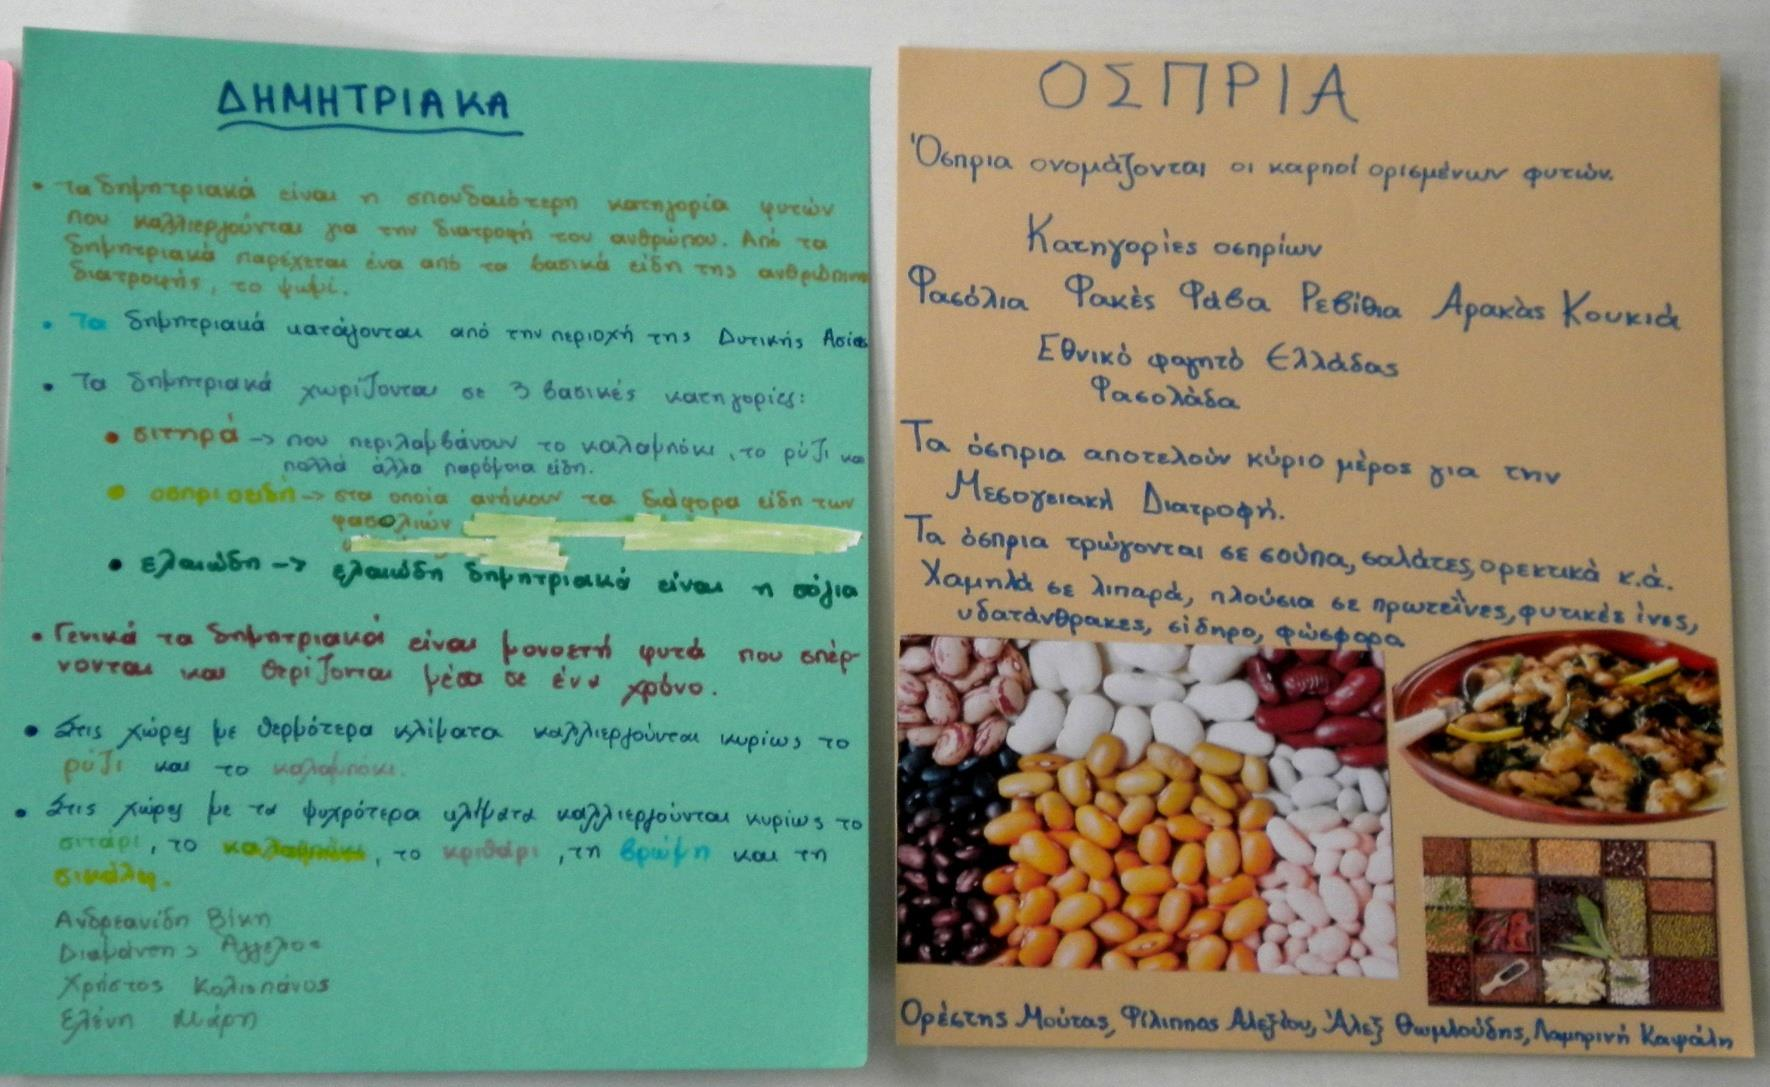 ΔΗΜΗΤΡΙΑΚΑ
• τα δημητριακά είναι η σπουδαιότερη κατηγορία φυτών
που καλλιεργούνται για την διατροφή του ανθρώπου. Από τα
δημητριακά παρέχεται ένα από τα βασικά είδη της
διατροφής, το ψωμί.
• Τα δημητριακά κατάγονται από την περιοχή της Δυτικής Ασίας
• Τα δημητριακά χωρίζονται σε 3 βασικές κατηγορίες:
• σιτηρά -> που περιλαμβάνουν το καλαμπόκι, το ρύζι και
πολλά άλλα παρόμοια είδη.
• οσπριοειδή -> στα οποία ανήκουν τα διάφορα είδη των
φασολιών
• ελαιώδη -> ελαιώδη δημητριακά είναι η σόγια
• Γενικά τα δημητριακά είναι μονοετή φυτά που σπέρ-
νονται και θερίζονται μέσα σε ένα χρόνο.
• Στις χώρες με θερμότερα κλίματα καλλιεργούνται κυρίως το
ρύζι και το καλαμπόκι.
• Στις χώρες με τα ψυχρότερα κλίματα καλλιεργούνται κυρίως το
σιτάρι, το καλαμπόκι, το κριθάρι, τη βρώμη και τη
σικάλη.
Ανδρεανίδη Βίκη
Διαμάντης Άγγελος
Χρήστος Κολιοπάνος
Ελένη Μάρη
ΟΣΠΡΙΑ
Όσπρια ονομάζονται οι καρποί ορισμένων φυτών.
Κατηγορίες οσπρίων
Φασόλια Φακές Φάβα Ρεβίθια Αρακάς Κουκιά
Εθνικό φαγητό Ελλάδας
Φασολάδα
Τα όσπρια αποτελούν κύριο μέρος για την
Μεσογειακή Διατροφή.
Τα όσπρια τρώγονται σε σούπα, σαλάτες, ορεκτικά κ.ά.
Χαμηλά σε λιπαρά, πλούσια σε πρωτεΐνες, φυτικές ίνες,
υδατάνθρακες, σίδηρο, φώσφορα
Ορέστης Μούτας, Φίλιππας Αλεξίου, Άλεξ Θωμλούδης, Λαμπρινή Καψάλη